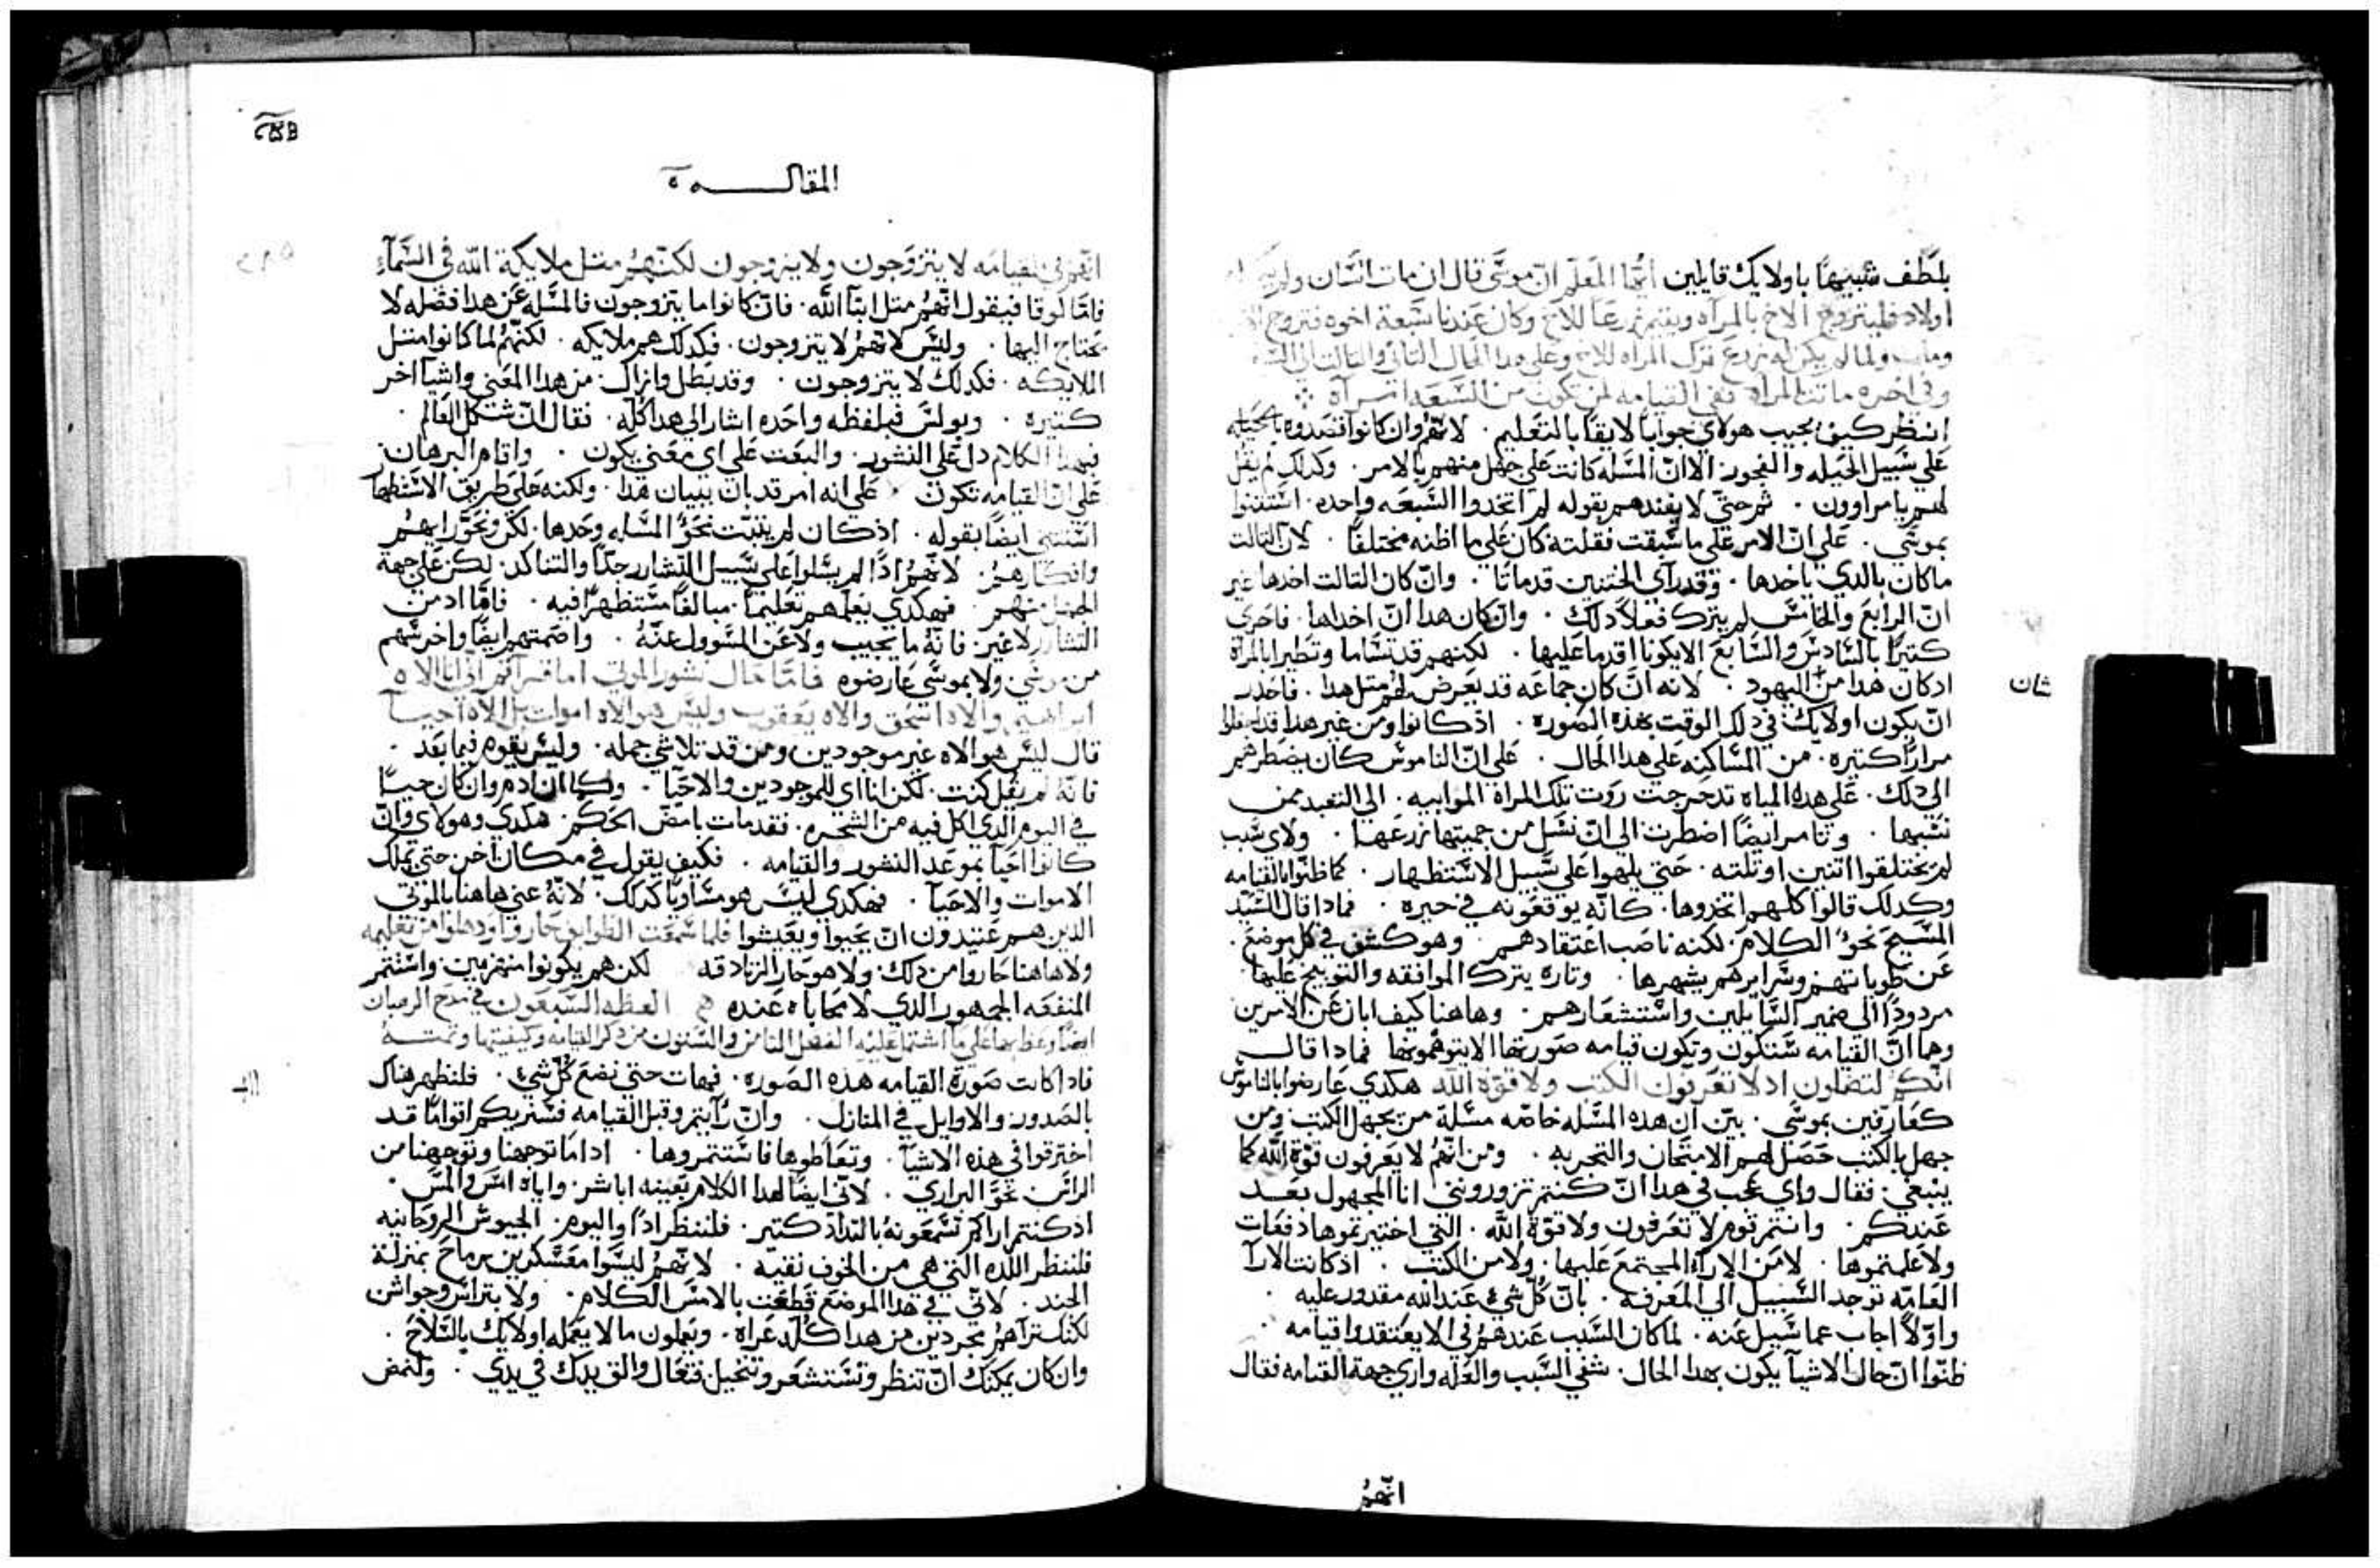 بلطف شبيهًا باولايك قايلين ايها المعلم ان موسى قال ان مات انسان ولم
اولاد فليتزوج الاخ بالمراه ويقيم زرعًا للاخ وكان عندنا سبعة اخوه فتزوج
ومات ولما لم يكن له زرع ترك المراه للاخ وعلى هدا الحال التاني والتالت الى
وفي اخره ماتت المراه ففي القيامه لمن تكون من السبعه امراه
انظر كيف يجيب هولاي جوابًا لايقًا بالتعليم . لانهم وان كانوا قصدوه بالحيله
على سبيل الحيله والفجور . الا ان المسله كانت على جهل منهم بالامر . وكدلك لم يقل
لهم يا مراوون . ثم حتى لا يفندهم بقوله لم اتخدوا السبعه واحده . استتنوا
بموسى . على ان الامر على ما سبقت فقلته كان على ما اظنه مختلقًا . لان التالت
ماكان بالدي ياخدها . وقد راى الختنين قد ماتا . وان كان التالت اخدها غير
ان الرابع والخامس لم يترك فعلًا دلك . وان كان هدا ان اخداها . فاحرى
كتيرًا بالسادس والسابع الا يكونا اقدما عليها . لكنهم قد تشاما وتطيرا بالمراة
ادكان هدا من اليهود . لانه ان كان جماعه قد يعرض لهم متل هدا . فاحدر
شان
ان يكون اولايك في دلك الوقت بهده الصوره . اد كانوا ومن غير هدا قد
مرارًا كتيره . من المساكنه على هدا الحال . على ان الناموس كان يضطرهم
الى دلك . على هده المياه تدحرجت روت تلك المراه الموابيه . الى التعبد ممن
نسبها . وتامر ايضًا اضطرت الى ان تنشل من حميتها زرعها . ولاي سبب
لم يختلقوا اتنين او تلته . حتى يلهوا على سبيل الاستظهار . كما ظنوا بالقيامه
وكدلك قالوا كلهم اتخدوها . كانه يوقعونه في حيره . فمادا قال السيد
المسيح نحو الكلام . لكنه ناصب اعتقادهم . وهو كشف في كل موضع .
عن طوياتهم وسرايرهم بشهرها . وتاره يترك الموافقه والتوبيخ عليها
مردودًا الى ضمير السايلين واستشعارهم . وهاهنا كيف ابان عن الامرين
وهما ان القيامه ستكون وتكون قيامه صورتها الا يتوهمونها فمادا قال
انكم لتضلون اد لا تعرفون الكتب ولا قوة الله هكدي عارضوا بالناموس
كعارفين بموسى . بين ان هده المسله خاصه مسلة من يجهل الكتب ومن
جهل بالكتب حصل لهم الامتحان والتجربه . ومن انهم لا يعرفون قوة الله كما
ينبغي . فقال واي عجب في هدا ان كنتم تزورونني انا المجهول بعد
عندكم . وانتم قوم لا تعرفون ولا قوة الله . التي اختبرتموها دفعات
ولا علمتموها . لا من الارآء المجتمع عليها . ولا من الكتب . اد كانت الارآ
العاميه توجد السبيل الى المعرفه . بان كل شيء عند الله مقدور عليه .
واولًا اجاب عما سيل عنه . لما كان السبب عندهم في الا يعتقدوا قيامه
ظنوا ان حال الاشيآ يكون بهدا الحال . شفي السبب والعله واري جهة القيامه فقال
انهم
المقالـــة
انهم في القيامه لا يتزوجون ولا يزوجون لكنهم متل ملايكة الله في السمآء
فاما لوقا فيقول انهم متل ابنآ الله . فان كانوا ما يتزوجون فالمسله عن هدا فضله لا
يحتاج اليها . وليس لانهم لا يتزوجون . فكدلك هم ملايكه . لكنهم لما كانوا متل
الملايكه . فكدلك لا يتزوجون . وقد بطل وازال من هدا المعنى واشيآ اخر
كتيره . وبولس فبلفظه واحده اشار الى هدا كله . فقال ان شكل العالم .
فبهدا الكلام دل على النشور . والبعت على اي معنى يكون . واقام البرهان
على ان القيامه تكون . على انه امر قد بان ببيان هدا . ولكنه على طريق الاستظهار
استتنى ايضًا بقوله . ادكان لم يتبت نحو المسله وحدها . لكن ونحو رايهم
وافكارهم . لانهم ادًا لم يسلوا على سبيل التشارر جدًا والتناكد . لكن على جهة
الجهل منهم . فهكدي يعلمهم تعليمًا مبالغًا مستظهرًا فيه . فاما اد من
التشارر لا غير . فانه ما يجيب ولا عن المسوول عنه . واصمتهم ايضًا واخرسهم
من موسى ولا بموسى عارضوه فاما حال نشور الموتى اما قراتم اني انا الاه
ابراهيم والاه اسحق والاه يعقوب وليس هو الاه اموات بل الاه احيآ
قال ليس هو الاه غير موجودين ومن قد تلاشي جمله . وليس يقوم فيما بعد .
فانه لم يقل كنت . لكن انا اي للموجودين والاحيآ . وكما ان ادم وان كان حيًا
في اليوم الدي اكل فيه من الشجره . فقد مات بامض الحكم . هكدي وهولاي وان
كانوا احيآ بموعد النشور والقيامه . فكيف يقول في مكان اخر حتى يملك
الاموات والاحيآ . فهكدي ليس هو مساويًا كدلك . لانه عني هاهنا بالموتى
الدين هم عتيدون ان يحيوا ويعيشوا فلما سمعت الطوايف حاروا ودهلوا من تعليمه
ولا هاهنا حاروا من دلك . ولا هو حار الزنادقه لكن هم يكونوا منهزمين واستتمر
المنفعه الجمهور الدي لا محاباه عنده العظه السبعون في مدح الرهبان
ايضًا وعظ بها على ما اشتمل عليه الفصل التامن والستون من دكر القيامه وكيفيتها وتمته
فادا كانت صورة القيامه هده الصوره . فهات حتى نضع كل شيء . فلنظهر هناك
بالصدور والاوايل في المنازل . وان رايتم وقبل القيامه فسنريكم اقوامًا قد
احترقوا في هده الاشيآ . وتعاطوها فاستتمروها . ادا ما توجهنا وتوجهنا من
الراس نحو البراري . لاني ايضًا لهدا الكلام بعينه اباشر . واياه امس والمس .
اد كنتم اراكم تسمعونه بالتداد كتير . فلننظر ادًا واليوم . الجيوش الروحانيه
فلننظر اللده التي هي من الخوف نقيه . لانهم ليسوا معسكرين برماح بمنزلة
الجند . لاني في هدا الموضع قطعت بالامس الكلام . ولا بتراس وجواشن
لكنك تراهم مجردين من هدا كله عراه . ويعملون ما لا يعمله اولايك بالسلاح .
وان كان يمكنك ان تنظر وتستشعر وتتخيل فتعال والق يدك في يدي . ولنمض